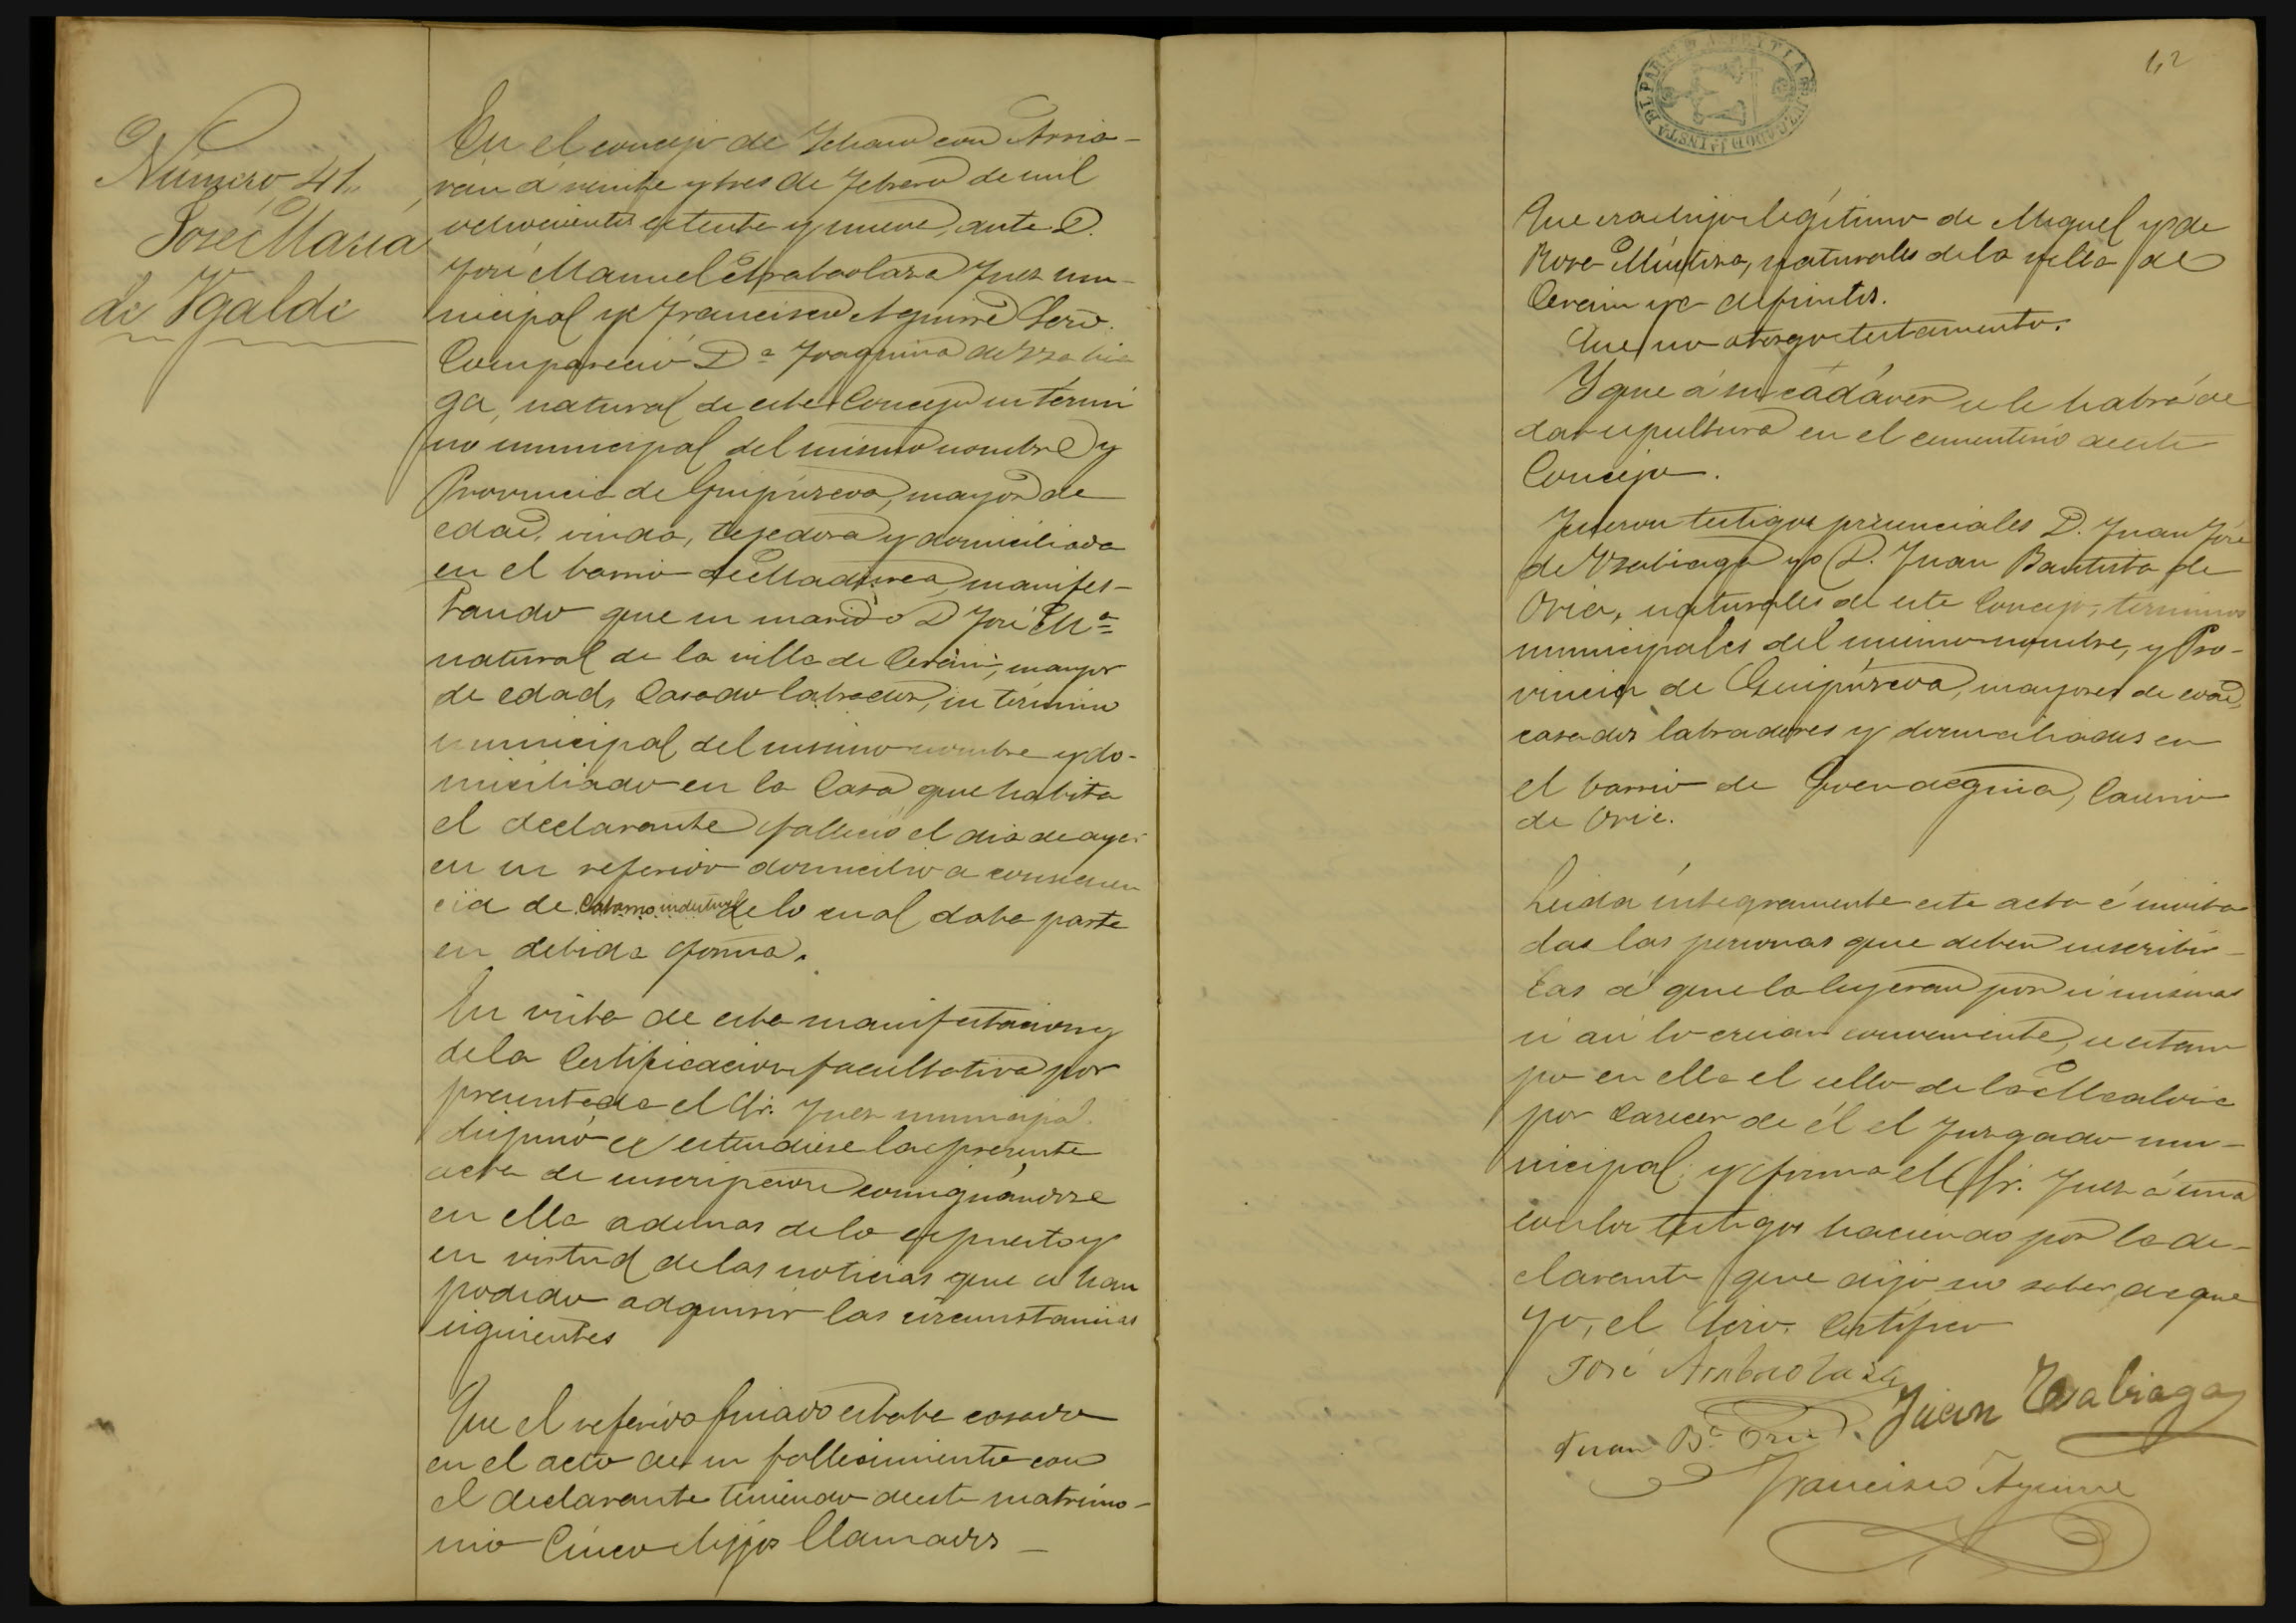 Número 41.
José Maria
de Ygalde
En el concejo de Ichaso con Arria-
rán á veinte y tres de Febrero de mil
ochocientos setenta y nueve, ante D.
José Manuel Arabaolaza Juez mu-
nicipal y Francisco Aguirre Serio.
Compareció Dª Joaquina de Yzabia
ga, natural de este Concejo en térmi
no municipal del mismo nombre y
Provincia de Guipúzcoa, mayor de
edad, viuda, tejedora y domiciliada
en el barrio de manifes-
tando que su marido D José Mª
natural de la villa de Cerain, mayor
de edad, Casado labrador, su término
municipal del mismo nombre y do-
miciliado en la Casa que habita
el declarante falleció el dia de ayer
en su referido domicilio a consecuen
cia de Catarro de lo cual daba parte
en debida forma.
En vista de esta manifestacion y
de la Certificacion facultativa por
presentada el Sr. Juez municipal
dispuso se estendiese la presente
acta de inscripcion consignandose
en ella ademas de lo espuesto y
en virtud de las noticias que se han
podido adquirir las circunstancias
siguientes
Que el referido finado estaba casado
en el acto de su fallecimiento con
el declarante teniendo de este matrimo-
nio Cinco hijos llamados —
42
JUZGADO DE 1ª INSTA DEL PART. DE AZPEITIA
Que era hijo legítimo de Miguel y de
Rosa Múxtiza, naturales de la villa de
Cerain ya difuntos.
Que no otorgo testamento.
Y que á su cadáver se le habrá de
dar sepultura en el cementerio de este
Concejo.
Fueron testigos presenciales D. Juan José
de Yzabiaga y D. Juan Bautista de
Oria, naturales de este Concejo, terminos
municipales del mismo nombre, y Pro-
vincia de Guipúzcoa, mayores de edad,
casados labradores y domiciliados en
el barrio de Caserio
de Oria.
Leida íntegramente esta acta é invita
das las personas que deben suscribir-
las á que la leyeran por si mismas
si asi lo creian conveniente, se estam
po en ella el sello de la Alcaldia
por carecer de él el Juzgado mu-
nicipal y firma el Sr. Juez á una
con los testigos haciendo por la de-
clarante que dijo no saber de que
yo, el Serio. Certifico
José Arabaolaza
Juan Yzabiaga
Juan Bª Oria
Francisco Aguirre